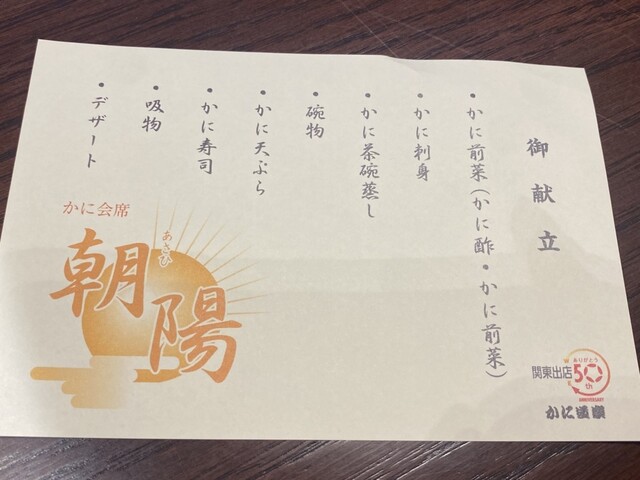 御献立
• かに前菜(かに酢・かに前菜)
• かに刺身
• かに茶碗蒸し
• 碗物
• かに天ぷら
• かに寿司
• 吸物
• デザート
かに会席
あさひ
朝陽
ありがとう
関東出店50th
ANNIVERSARY
かに道樂